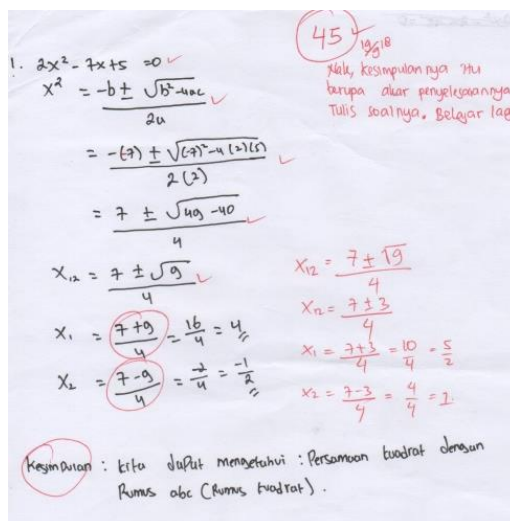 45
19/9 18
Nak, kesimpulannya itu
berupa akar penyelesaiannya
Tulis soalnya. Belajar lag
1. 2x² - 7x + 5 = 0
x² = -b ± √b² - 4ac / 2a
= -(-7) ± √(-7)² - 4(2)(5) / 2(2)
= 7 ± √49 - 40 / 4
X₁₂ = 7 ± √9 / 4
X₁ = 7+9 / 4 = 16/4 = 4
X₂ = 7-9 / 4 = -2/4 = -1/2
X₁₂ = 7 ± √9 / 4
X₁₂ = 7 ± 3 / 4
X₁ = 7+3 / 4 = 10/4 = 5/2
X₂ = 7-3 / 4 = 4/4 = 1
Kesimpulan : kita dapat mengetahui : Persamaan kuadrat dengan
Rumus abc (Rumus kuadrat).